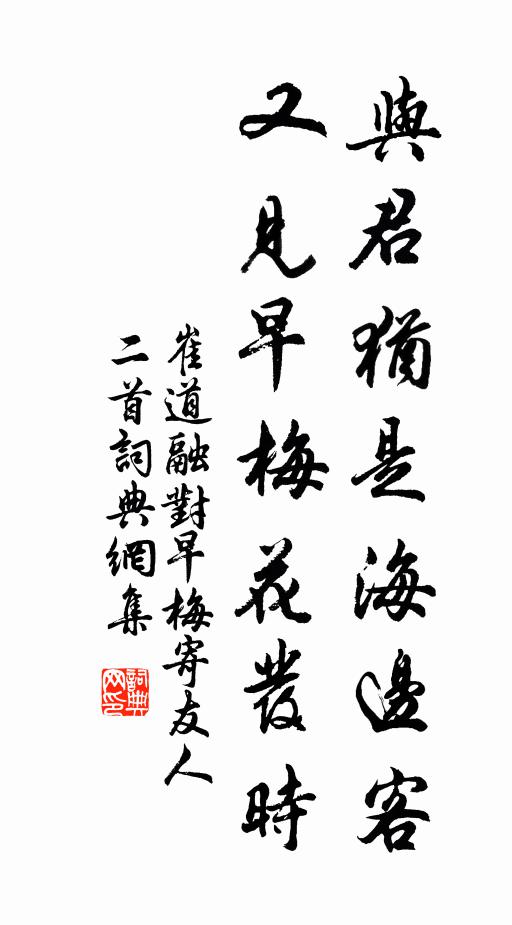 與君猶是海邊客
又見早梅花發時
崔道融對早梅寄友人
二首詞典網集
詞典
网印